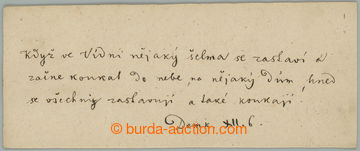 Když ve Vídni nějaký šelma se zastaví a
začne koukat do nebe, na nějaký dům, hned
se všechny zastavují a také koukají.
Demk XII. 6.
burda-auction.com